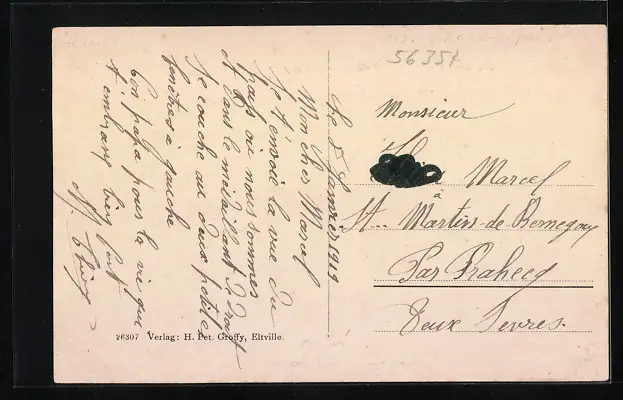 5635t
Le 8 Janvier 1919
Mon cher Marcel
Je t'envoie la vue du
pays où nous sommes
et dans le médaillon à droite
je couche au deux petites
fenêtres à gauche
Ton papa pour la vie qui
t'embrasse bien fort
Monsieur
Marcel
à
St. Martin de Bernegoue
Par Prahecq
Deux Sevres.
26307 Verlag: H. Pet. Groffy, Eltville.